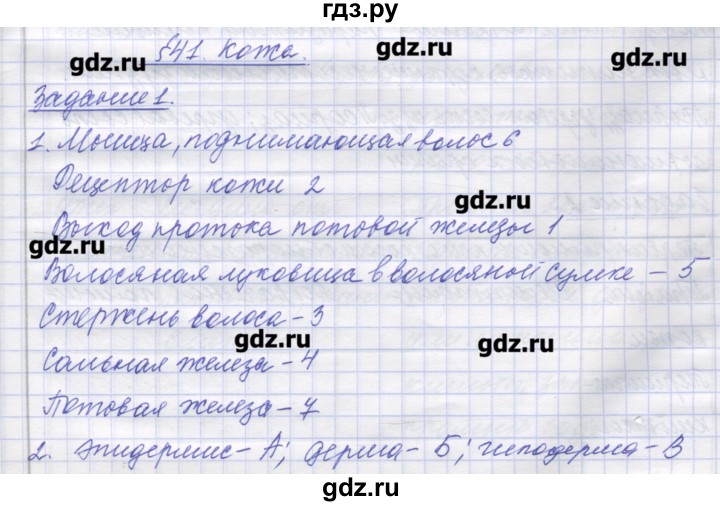 гдз.ру
gdz.ru
gdz.ru
gdz.ru
§41. Кожа.
Задание 1.
1. Мышца, поднимающая волос 6
Рецептор кожи 2
gdz.ru
Выход протока потовой железы 1
gdz.ru
Волосяная луковица в волосяной сумке – 5
Стержень волоса – 3
gdz.ru
gdz.ru
Сальная железа – 4
Потовая железа – 7
2. Эпидермис – А; дерма – Б; гиподерма – В
gdz.ru